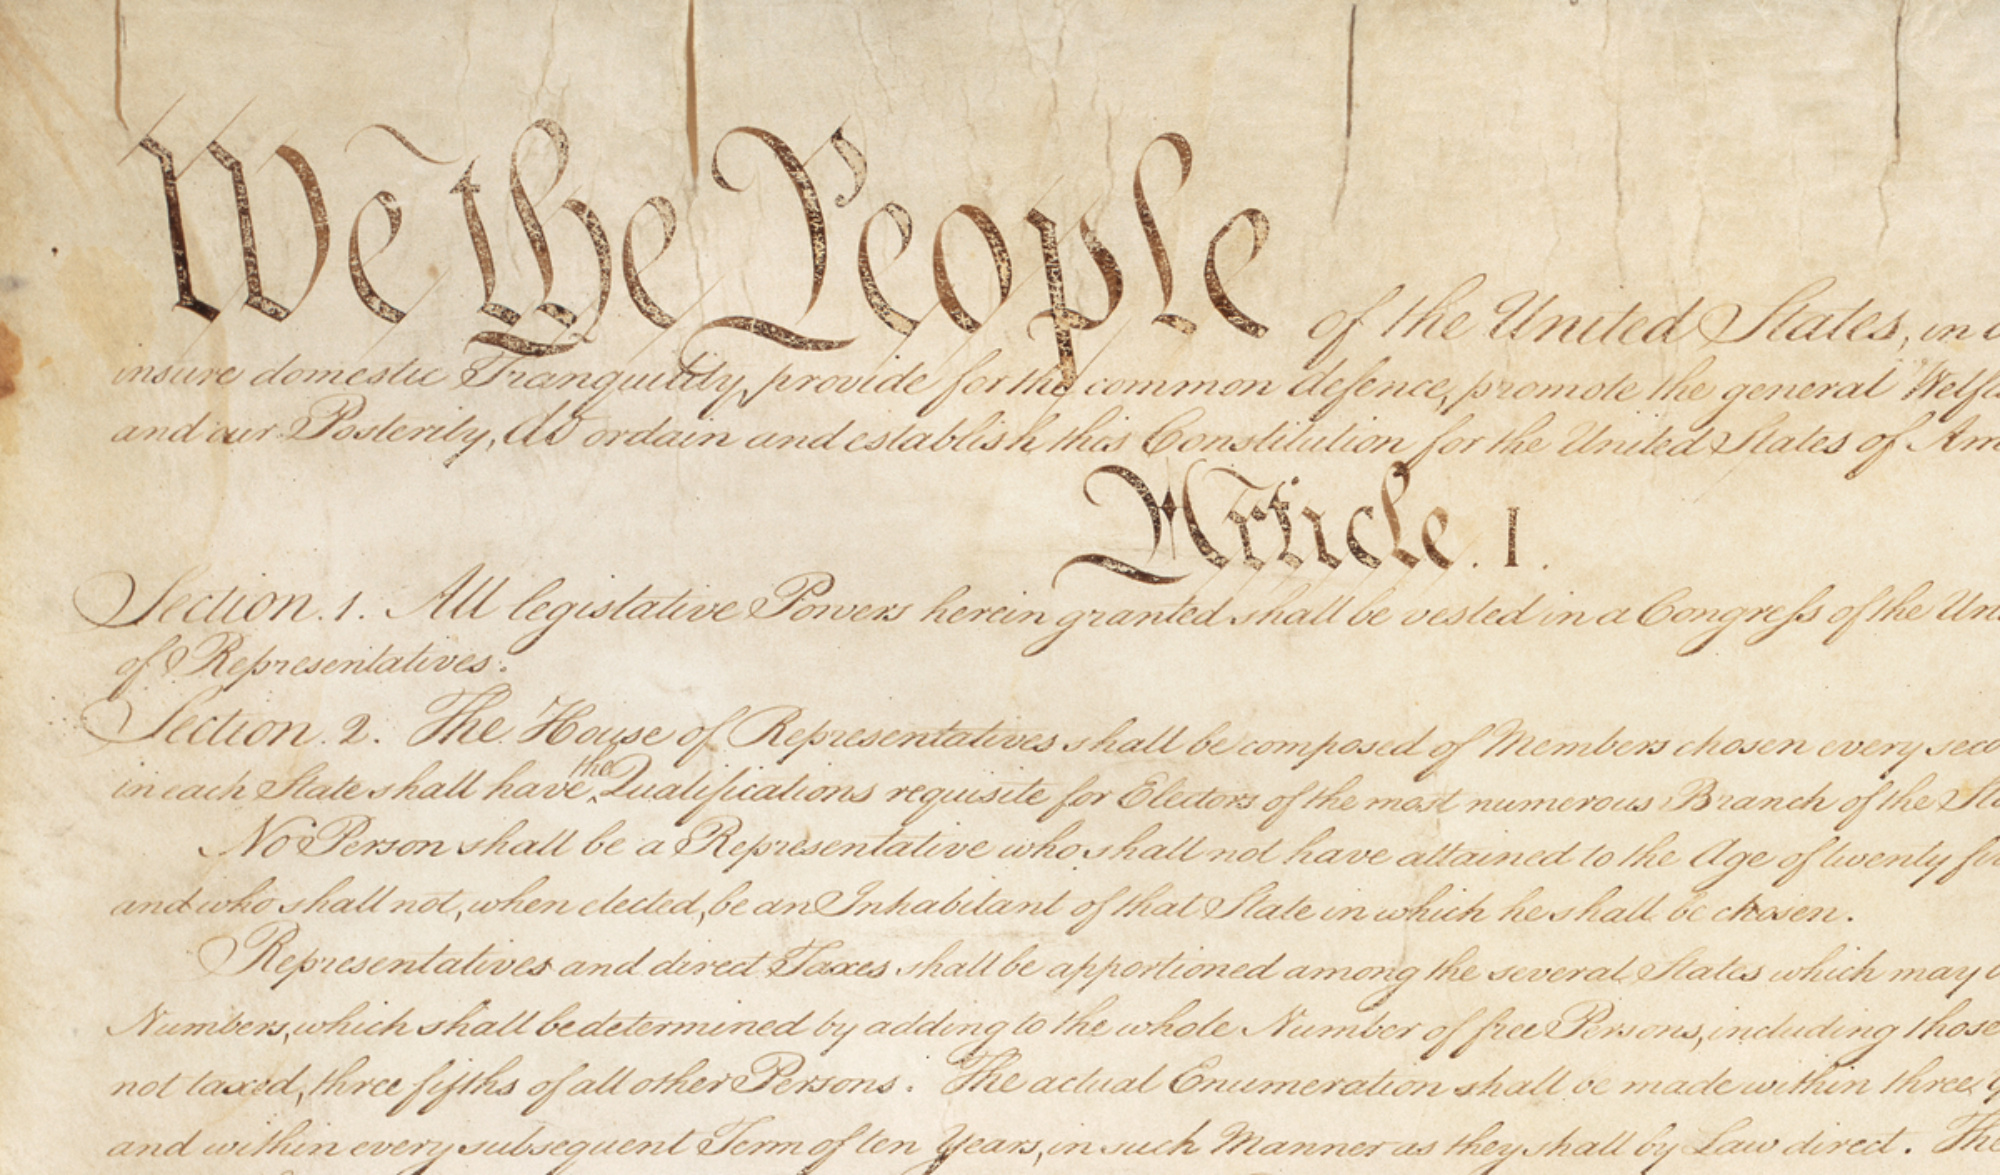 We the People of the United States, in
insure domestic Tranquility, provide for the common defence, promote the general Welfa
and our Posterity, do ordain and establish this Constitution for the United States of Am
Article. I.
Section. 1. All legislative Powers herein granted shall be vested in a Congress of the Un
of Representatives.
Section. 2. The House of Representatives shall be composed of Members chosen every seco
the
in each State shall have Qualifications requisite for Electors of the most numerous Branch of the Sta
No Person shall be a Representative who shall not have attained to the Age of twenty fi
and who shall not, when elected, be an Inhabitant of that State in which he shall be chosen.
Representatives and direct Taxes shall be apportioned among the several States which may b
Numbers, which shall be determined by adding to the whole Number of free Persons, including those
not taxed, three fifths of all other Persons. The actual Enumeration shall be made within three Y
and within every subsequent Term of ten Years, in such Manner as they shall by Law direct. The